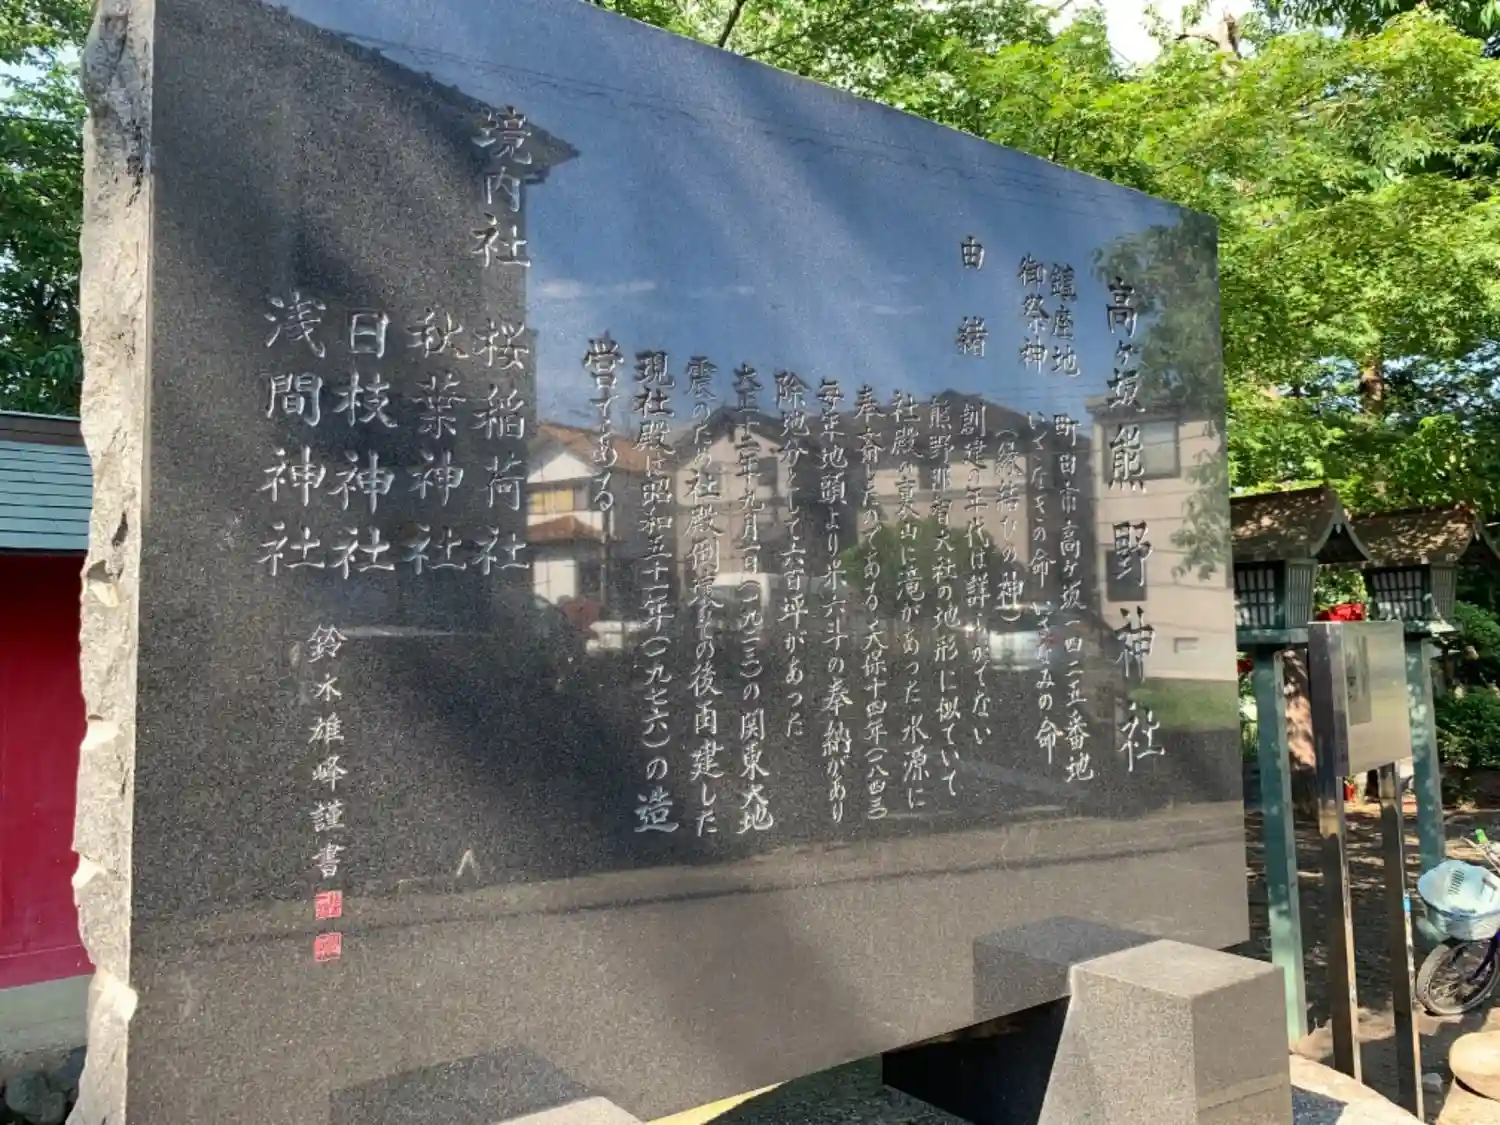 高ヶ坂熊野神社
鎮座地 町田市高ヶ坂一四二五番地
御祭神 いざなぎの命 いざなみの命
(縁結びの神)
由緒 創建の年代は詳らかでない
熊野那智大社の地形に似ていて
社殿の裏山に滝があった水源に
奉斎したのである天保十四年(一八四三)
毎年地頭より米六斗の奉納があり
除地分として六百坪があった
大正十二年九月一日(一九二三)の関東大地
震のため社殿倒潰その後再建した
現社殿は昭和五十一年(一九七六)の造
営である
境内社 桜稲荷社
秋葉神社
日枝神社
浅間神社
鈴木雄峰謹書